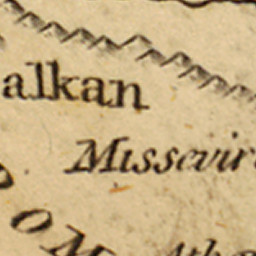 alkan
Missevir
OM